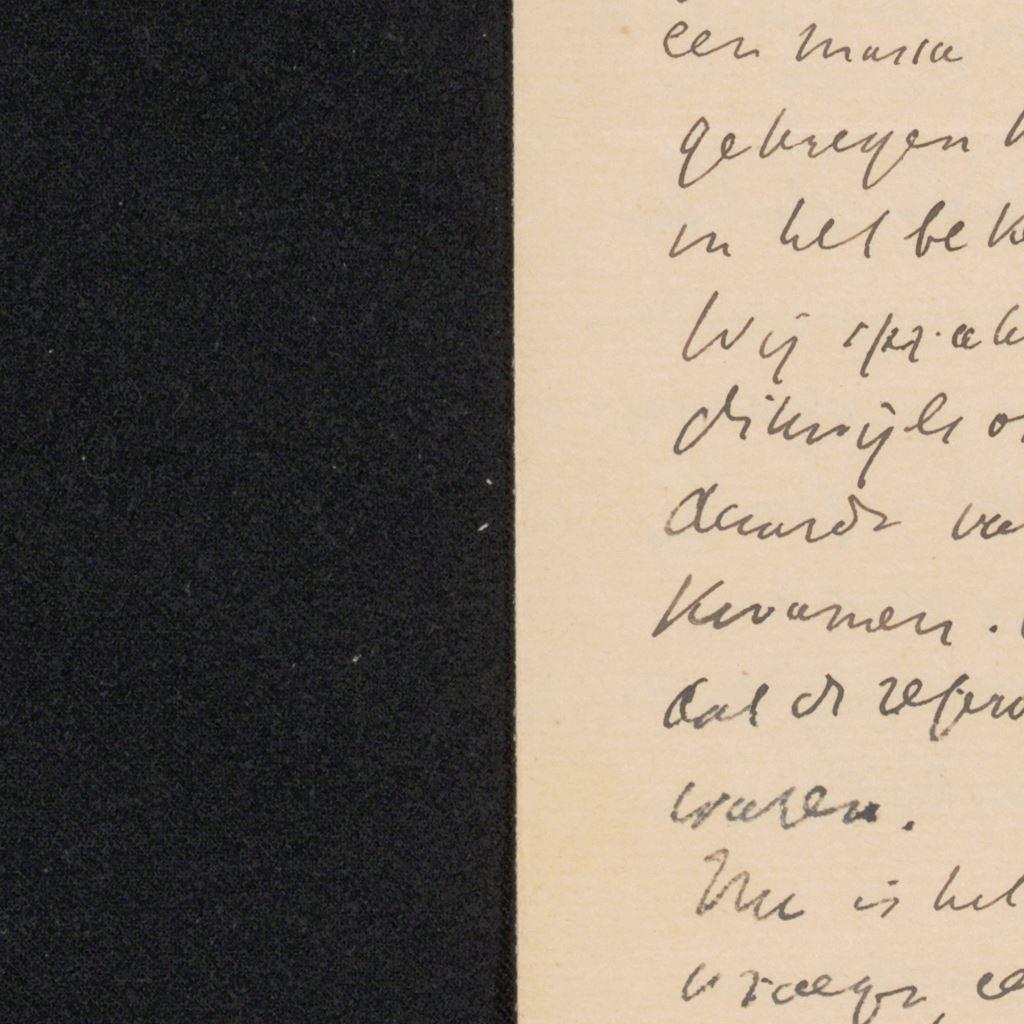 een massa
gekregen h
in het bek
Wij sprak
dikwijls o
daardr va
kwamen.
dat dr
waren.
Nu is het
vroeger